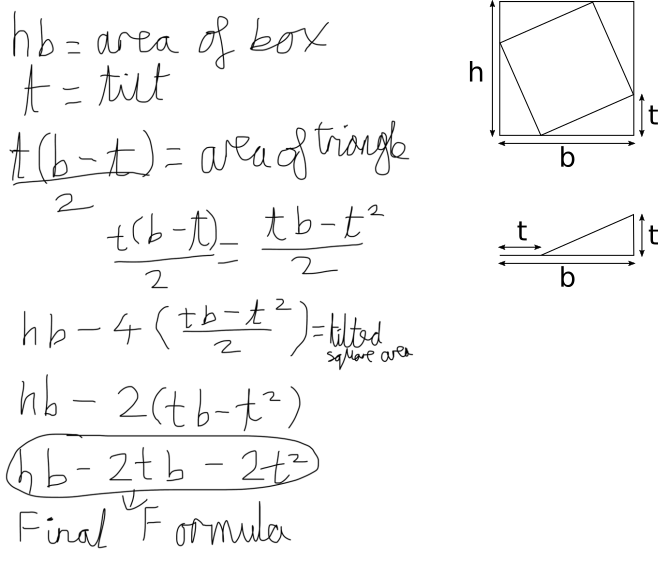 hb = area of box
t = tilt
t(b-t)/2 = area of triangle
t(b-t)/2 = tb-t²/2
hb - 4(tb-t²/2) = tilted square area
hb - 2(tb-t²)
hb - 2tb - 2t²
Final Formula
h
t
b
t
t
b